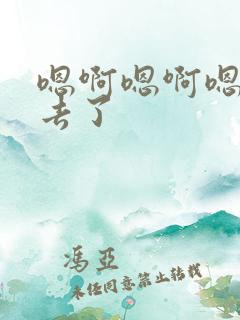 嗯啊嗯啊嗯
去了
冯亞
未经同意禁止转载